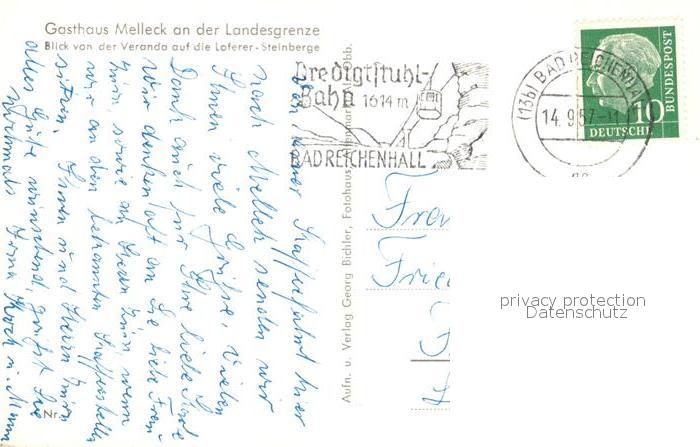 Gasthaus Melleck an der Landesgrenze
Blick von der Veranda auf die Loferer-Steinberge
Predigtstuhl-
Bahn 1614 m
BAD REICHENHALL
(13b) BAD REICHENHA
14.9.57-11
DEUTSCHE
BUNDESPOST
10
Von einer Kaffeefahrt hier
nach Melleck senden wir
Ihnen viele Grüße. Vielen
Dank auch für Ihre liebe Karte
Wir denken oft an Sie liebe Frau
sowie an Herrn wenn
wir an den bekannten Kaffeestellen
sitzen. Ihnen und Herrn
alles Gute wünschend, grüßt Sie
nochmals Irma Koch u. Mann
Aufn. u. Verlag Georg Bichler, Fotohaus
Nr.
Frau
Frie
privacy protection
Datenschutz